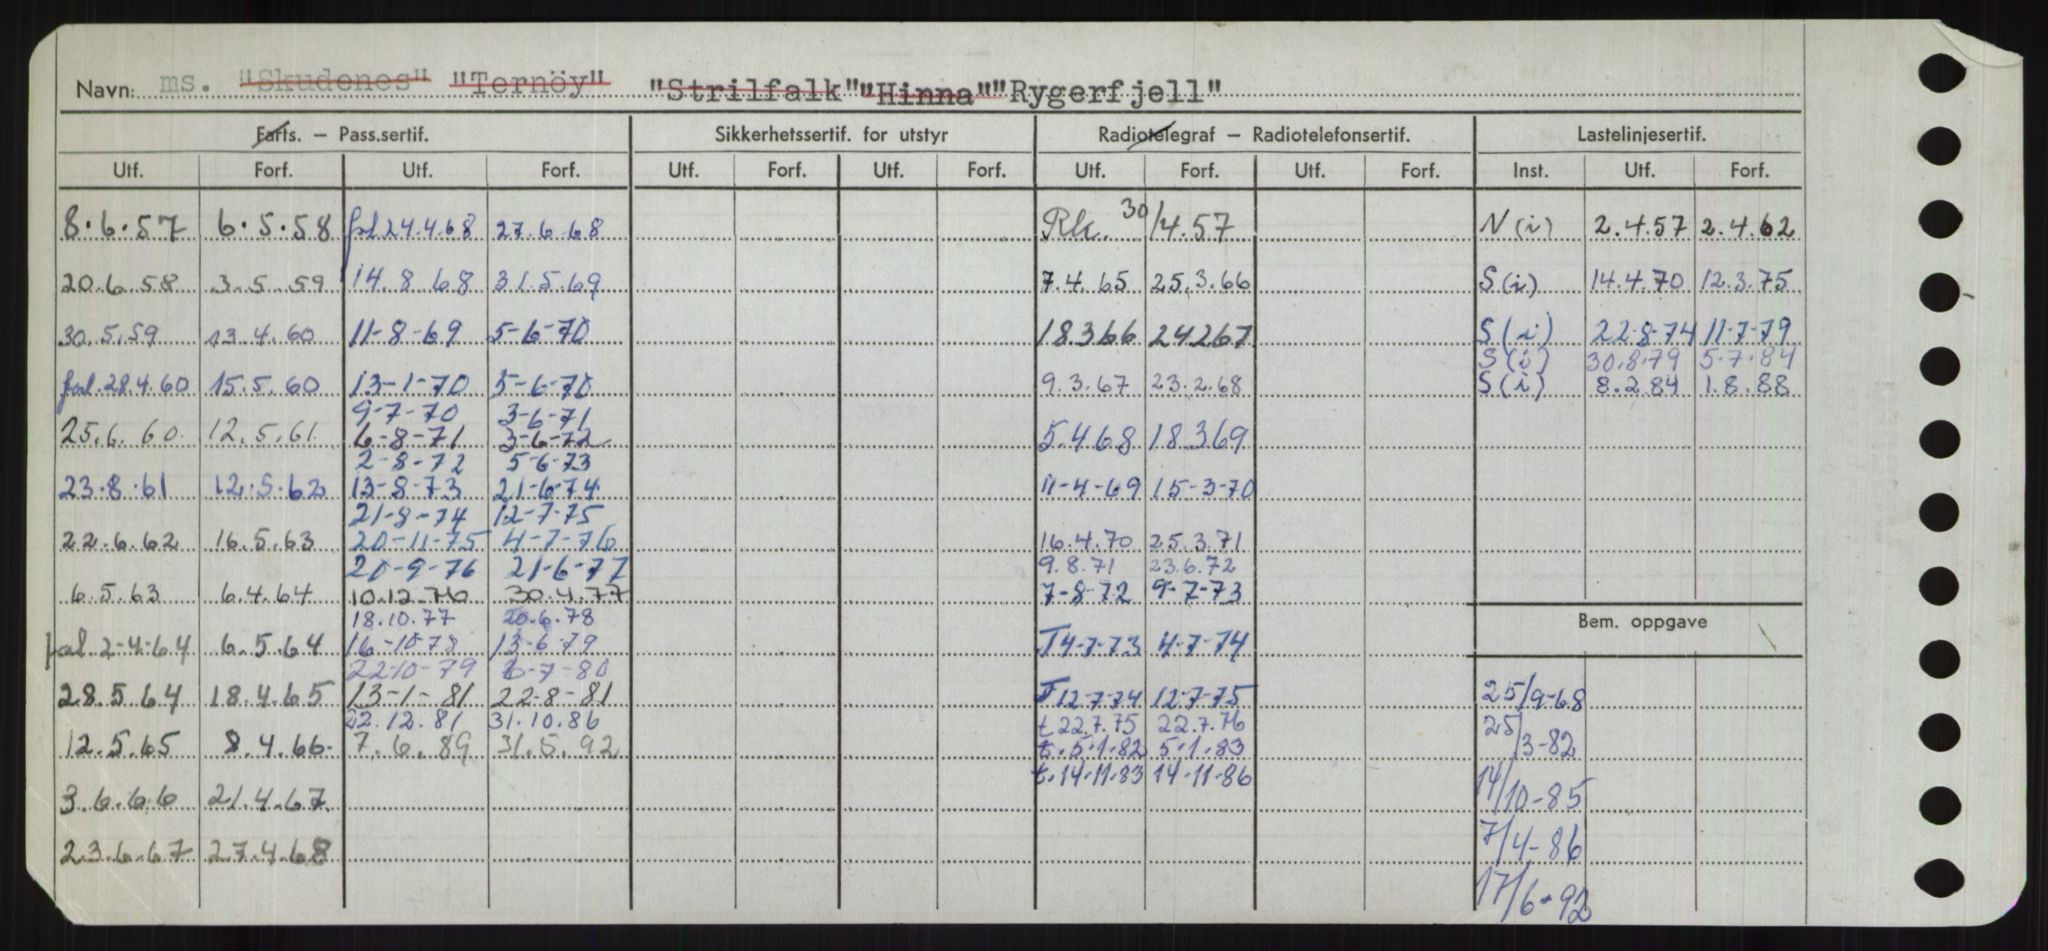 Navn: ms. "Skudenes" "Ternöy" "Strilfalk" "Hinna" "Rygerfjell"
Farts. – Pass.sertif. Sikkerhetssertif. for utstyr Radiotelegraf – Radiotelefonsertif. Lastelinjesertif.
Utf. Forf. Utf. Forf. Utf. Forf. Utf. Forf. Utf. Forf. Utf. Forf. Inst. Utf. Forf.
8.6.57 6.5.58 fal 24.4.68 27.6.68 Rk. 30/4.57 N(i) 2.4.57 2.4.62
20.6.58 3.5.59 14.8.68 31.5.69 7.4.65 25.3.66 S(i) 14.4.70 12.3.75
30.5.59 13.4.60 11-8-69 5-6-70 18366 24267 S(i) 22-8-74 11-7-79
S(i) 30.8.79 5.7.84
fal.28.4.60 15.5.60 13-1-70 5-6-70 9.3.67 23.2.68 S(i) 8.2.84 1.8.88
9-7-70 3-6-71
25.6.60 12.5.61 6-8-71 3-6-72 5.468 18369
2-8-72 5-6-73
23.8.61 12.5.62 13-8-73 21-6-74 11-4-69 15-3-70
21-8-74 12-7-75
22.6.62 16.5.63 20-11-75 4-7-76 16.4.70 25.3.71
20-9-76 21-6-77 9.8.71 23.6.72
6.5.63 6.4.64 10.12.76 30.4.77 7-8-72 9-7-73
18.10.77 20.6.78
fal.2-4-64 6.5.64 16-10-78 13-6-79 T4-7-73 4-7-74
22-10-79 6-7-80
28.5.64 18.4.65 13-1-81 22-8-81 T12.7.74 12-7-75
22.12.81 31.10.86 t22.7.75 22.7.76
12.5.65 8.4.66. 7.6.89 31.5.92 t.5.1.82 5.1.83
t.14.11.83 14-11-86
3.6.66 21.4.67
23.6.67 27.4.68
Bem. oppgave
25/9-68
25/3-82
14/10-85
7/4-86
17/6-92